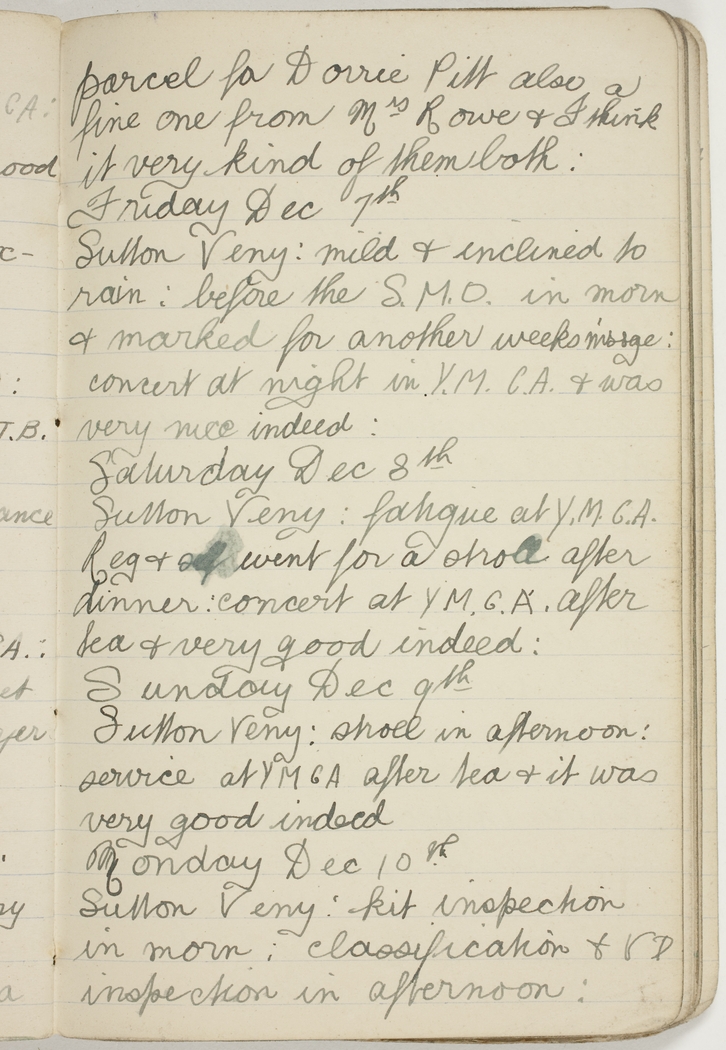 parcel fo Dorrie Pitt also a
fine one from Mrs Rowe & I think
it very kind of them both :
Friday Dec 7th
Sutton Veny : mild & inclined to
rain : before the S.M.O. in morn
& marked for another weeks massge :
concert at night in Y.M.C.A. & was
very nice indeed :
Saturday Dec 8th
Sutton Veny : fatigue at Y.M.C.A.
Reg & self went for a stroll after
dinner : concert at Y.M.C.A. after
tea & very good indeed :
Sunday Dec 9th
Sutton Veny : stroll in afternoon :
service at YMCA after tea & it was
very good indeed
Monday Dec 10th
Sutton Veny : kit inspection
in morn : classification & VD
inspection in afternoon :
CA :
ood
c-
:
T.B.
ance
A. :
et
ger
a